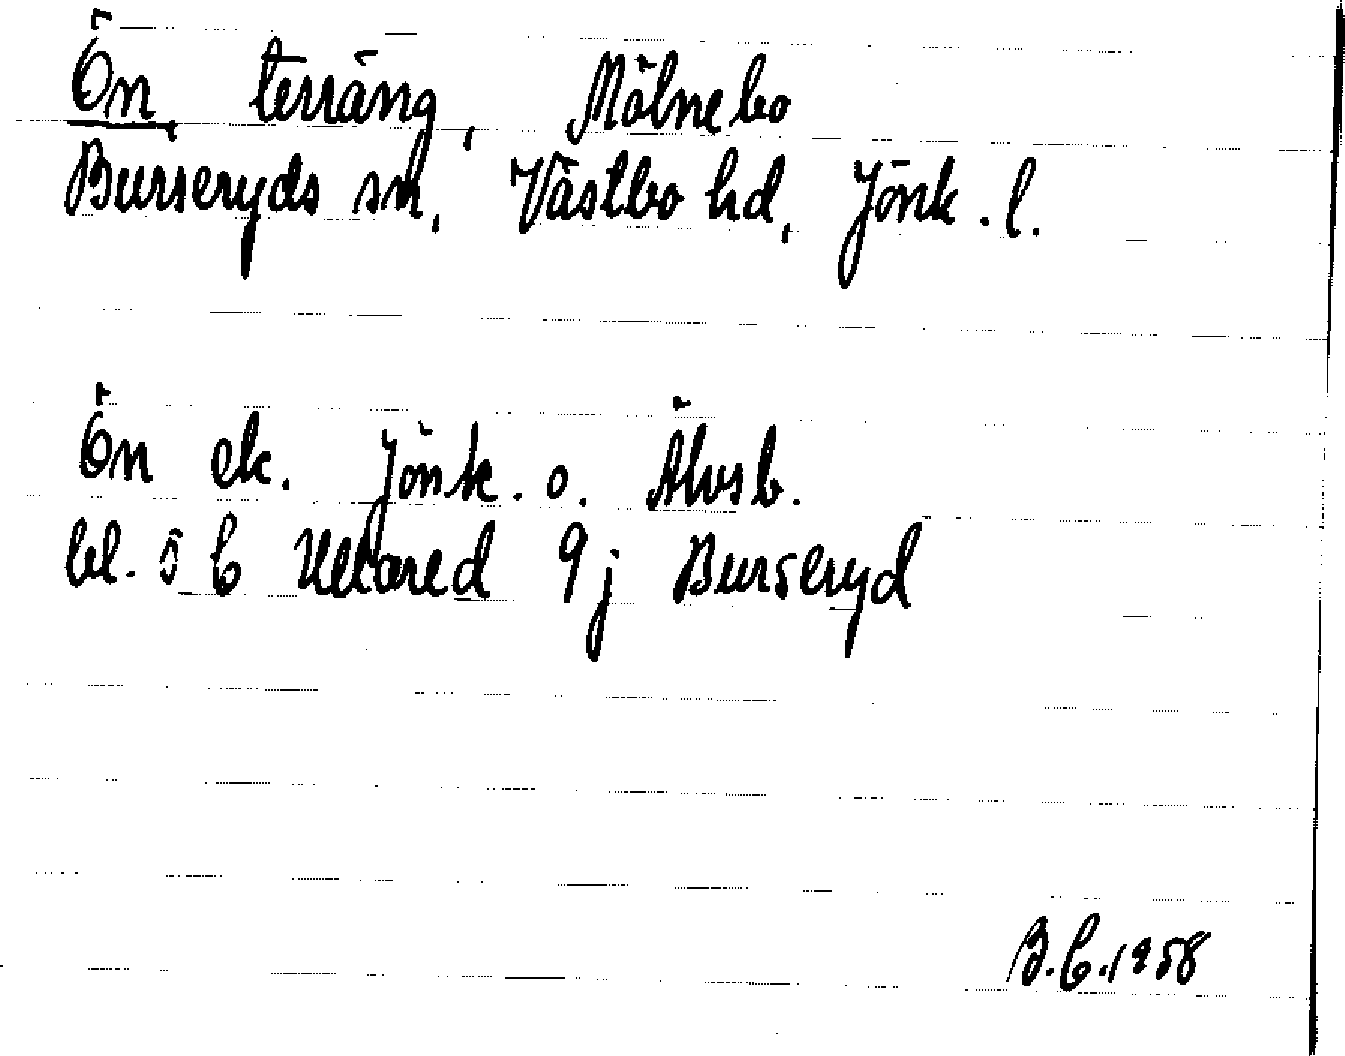 Ön, terräng, Mölnebo
Burseryds sn, Västbo hd, Jönk. l.
Ön ek. Jönk. o. Älvsb.
bl. 5 C Ullared 9 j Burseryd
B.C. 1958